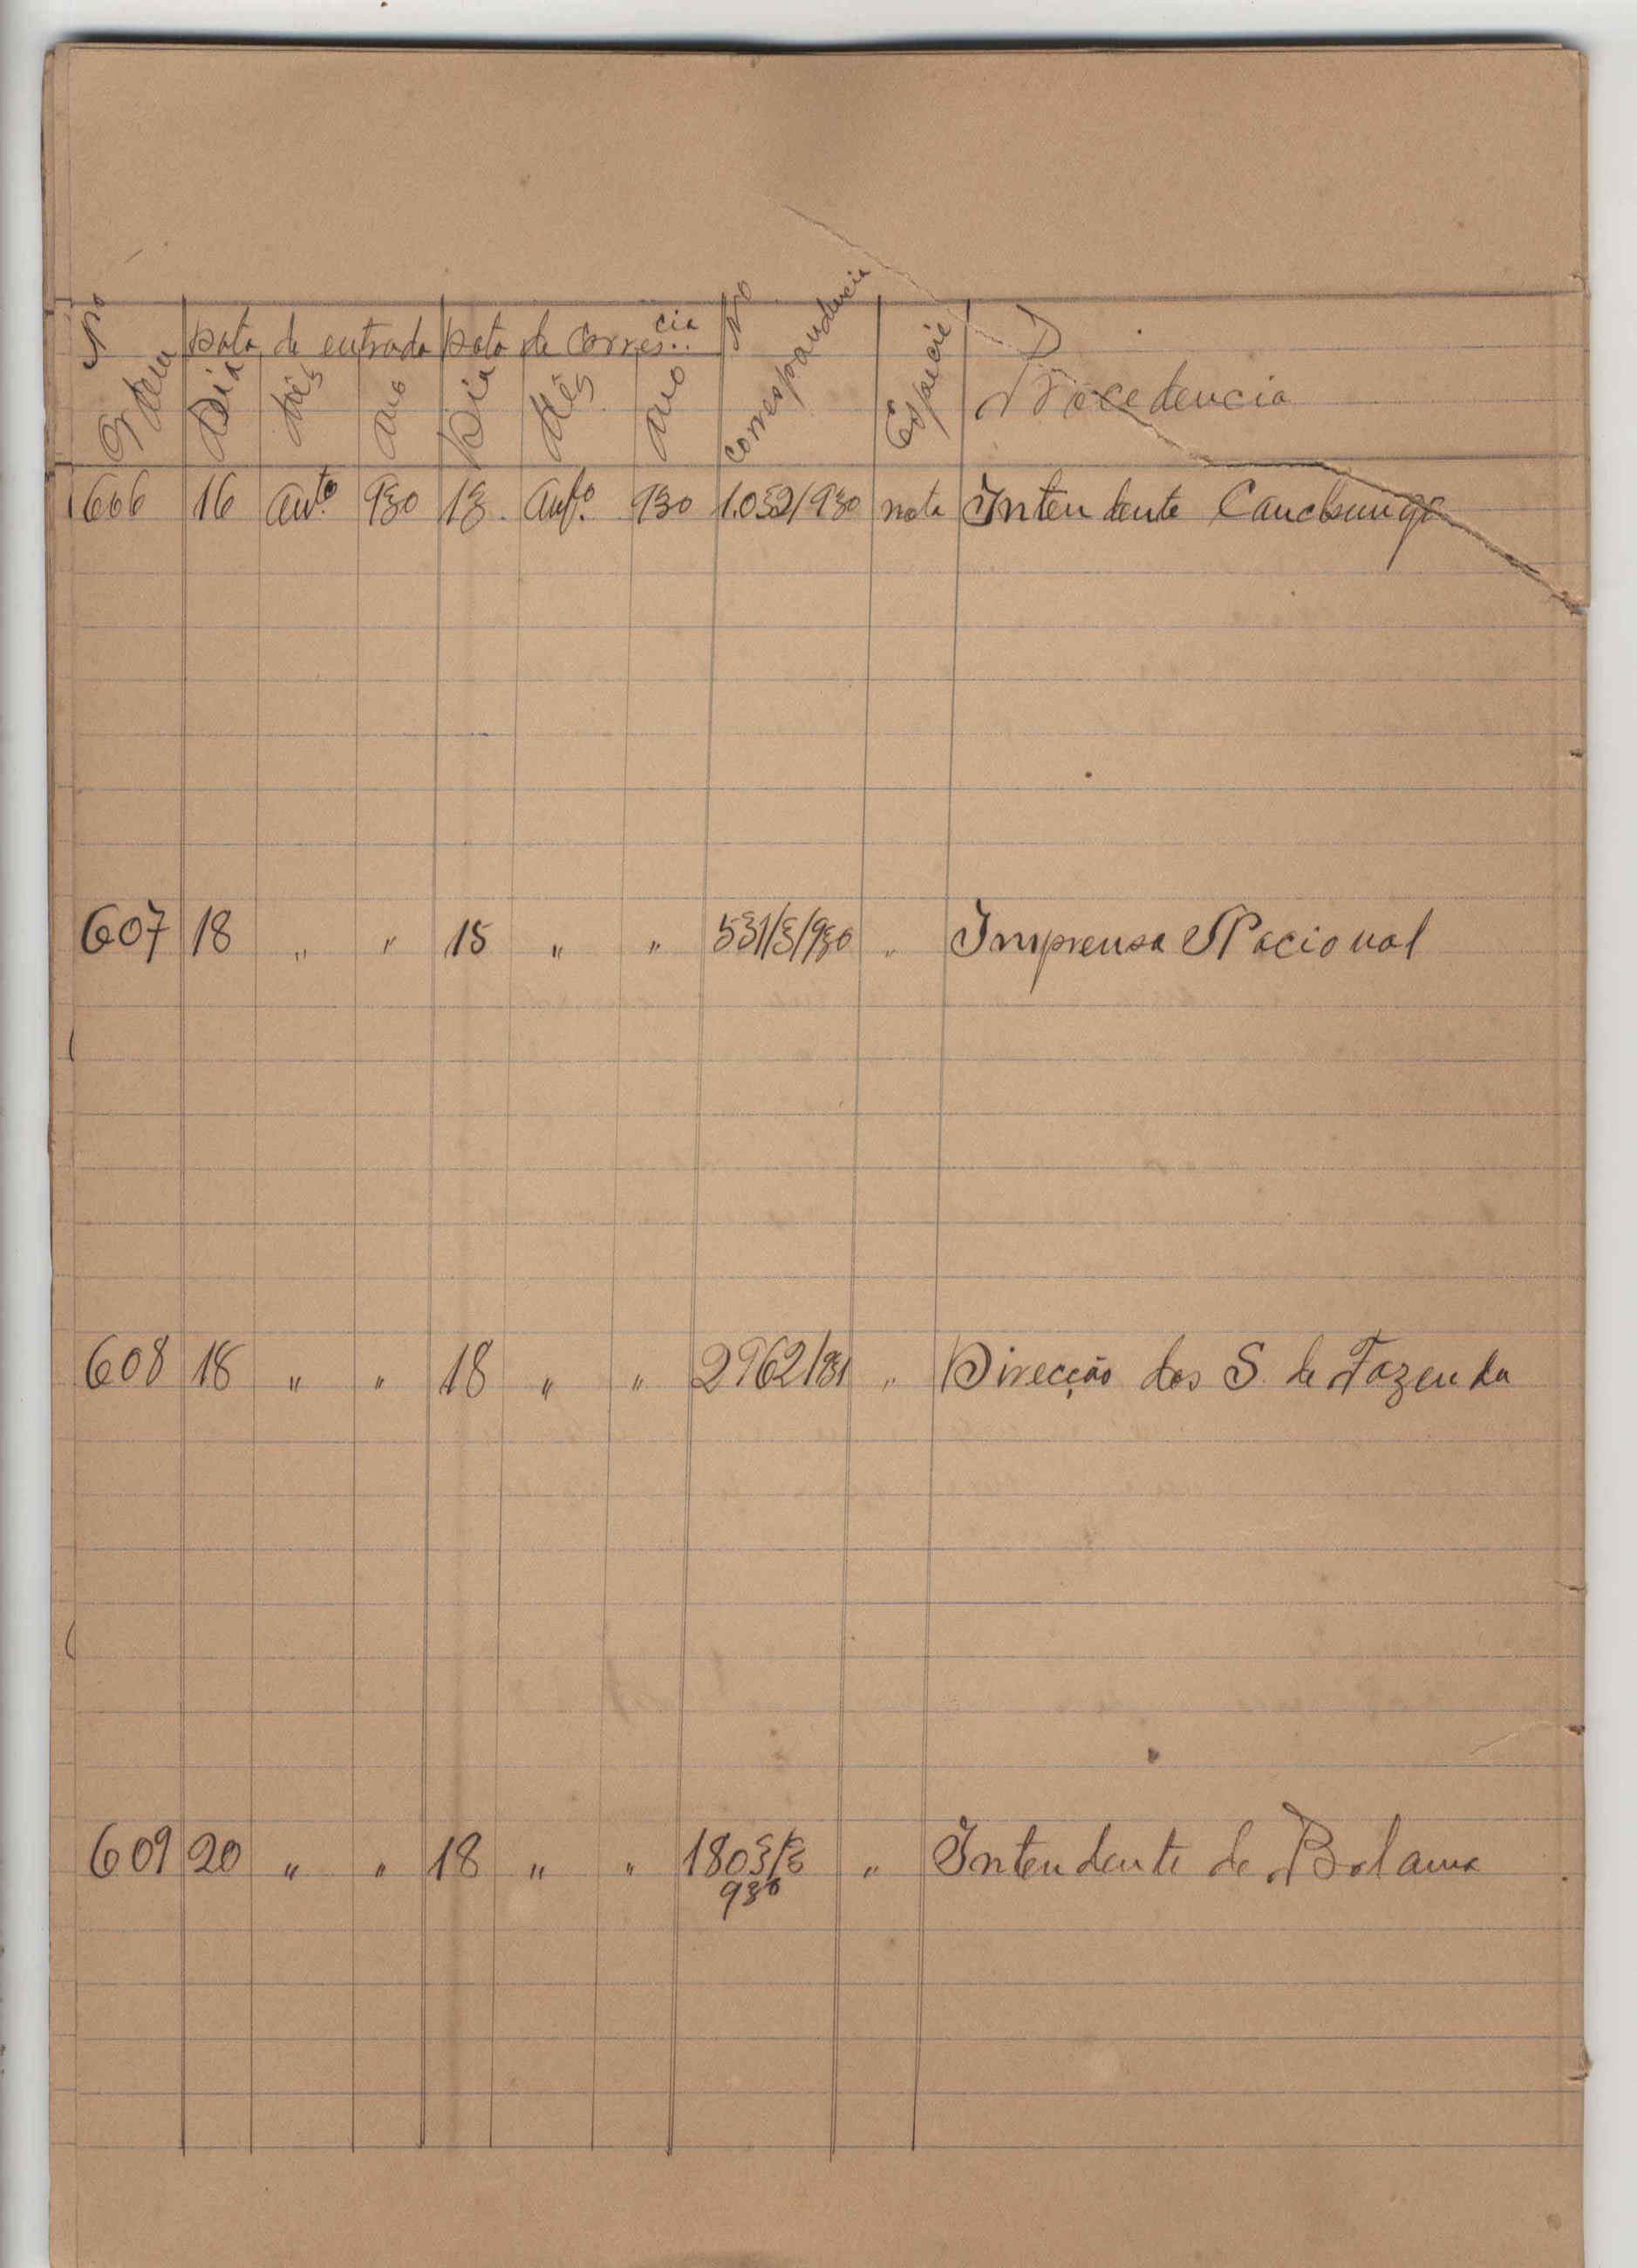 No Ordem Data de entrada Data de Corres.cia No correspondencia Especie Procedencia
Dia Mês ano Dia Mês ano
606 16 930 13 930 1.039/930 nota Intendente Canchungo
607 18 " " 15 " " 531/3/930 " Imprensa Nacional
608 18 " " 18 " " 2962/931 " Direcção dos S. de Fazenda
609 20 " " 18 " " 1803/3 " Intendente de Bolama
930